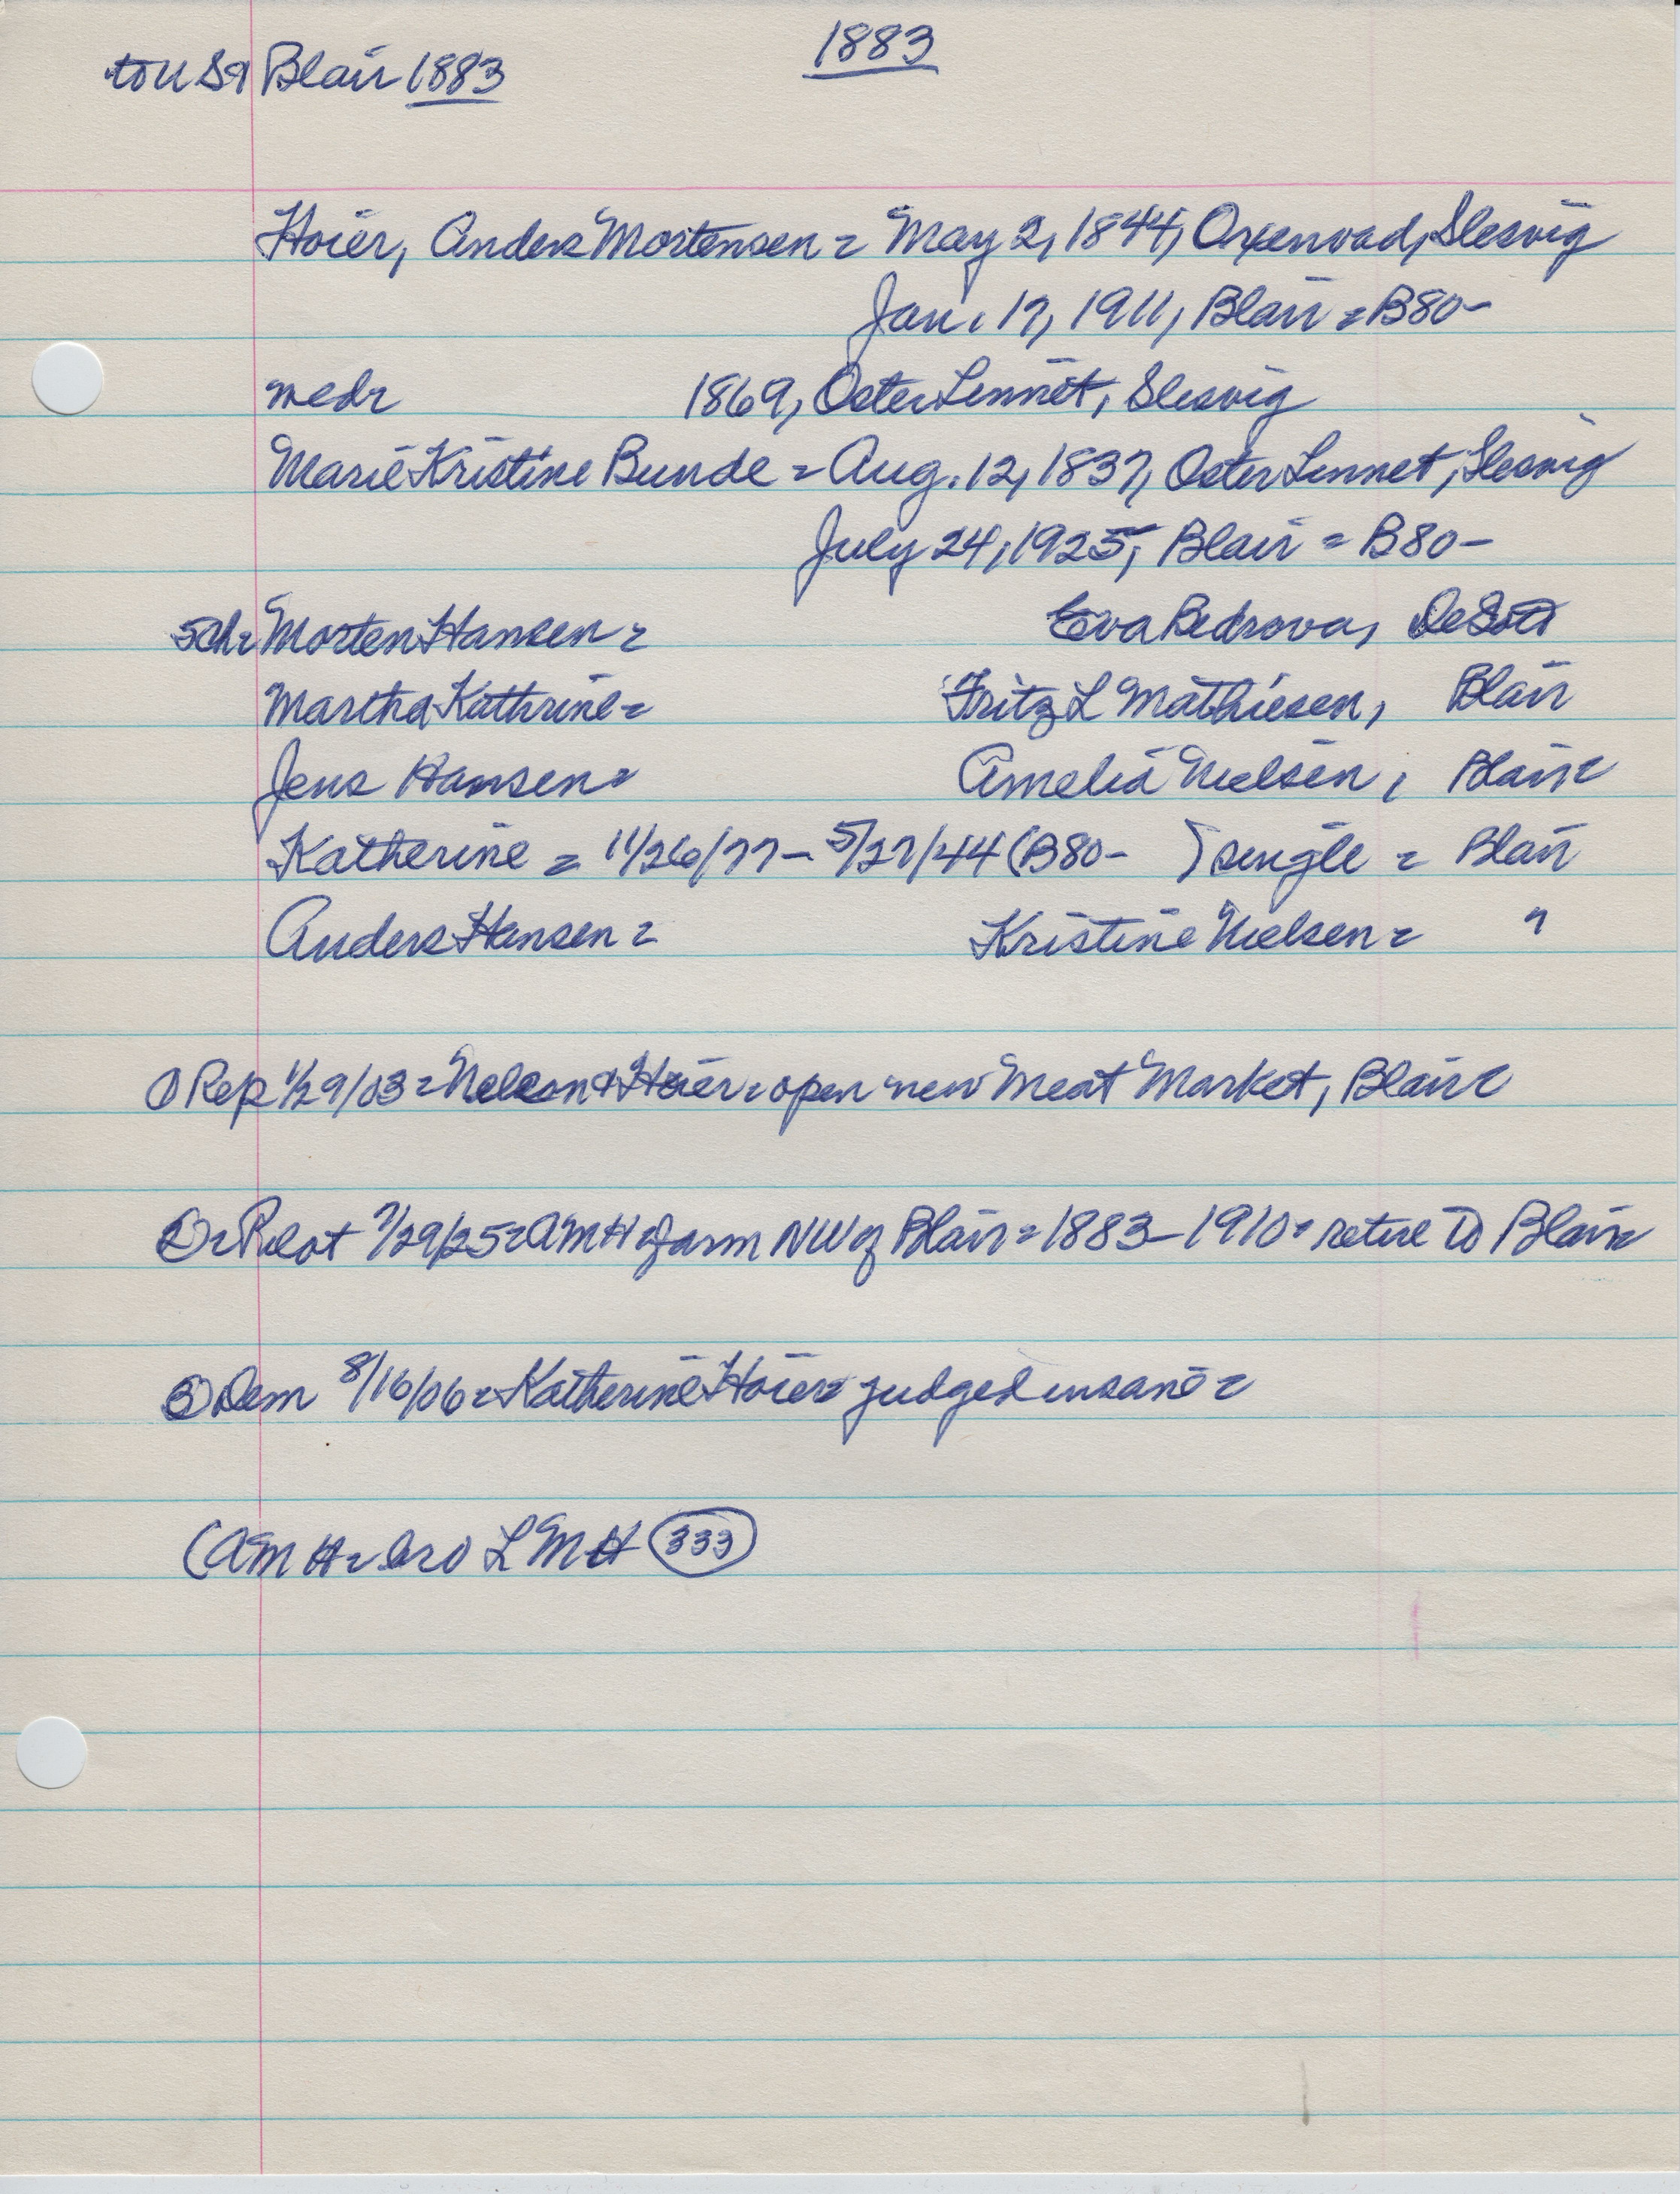 1883
to US = Blair 1883
Hoier, Anders Mortensen = May 2, 1844, Oxenvad, Slesvig
Jan. 17, 1911, Blair = B80-
medr 1869, Oster Linnet, Slesvig
Marie Kristine Bunde = Aug. 12, 1837, Oster Linnet, Slesvig
July 24, 1925, Blair = B80-
5ch = Morten Hansen = Eva Bedrova, DeSoto
Martha Kathrine = Fritz L Mathiesen, Blair
Jens Hansen = Amelia Nielsen, Blair
Katherine = 11/26/77 - 5/27/44 (B80- ) single = Blair
Anders Hansen = Kristine Nielsen = "
① Rep 1/29/03 = Nelson & Hoier = open new Meat Market, Blair
② = Pilot 7/29/25 = AMH = farm NW of Blair = 1883-1910 = retire to Blair
③ Dem 8/16/06 = Katherine Hoier = judged insane =
(AMH = bro LMH 333